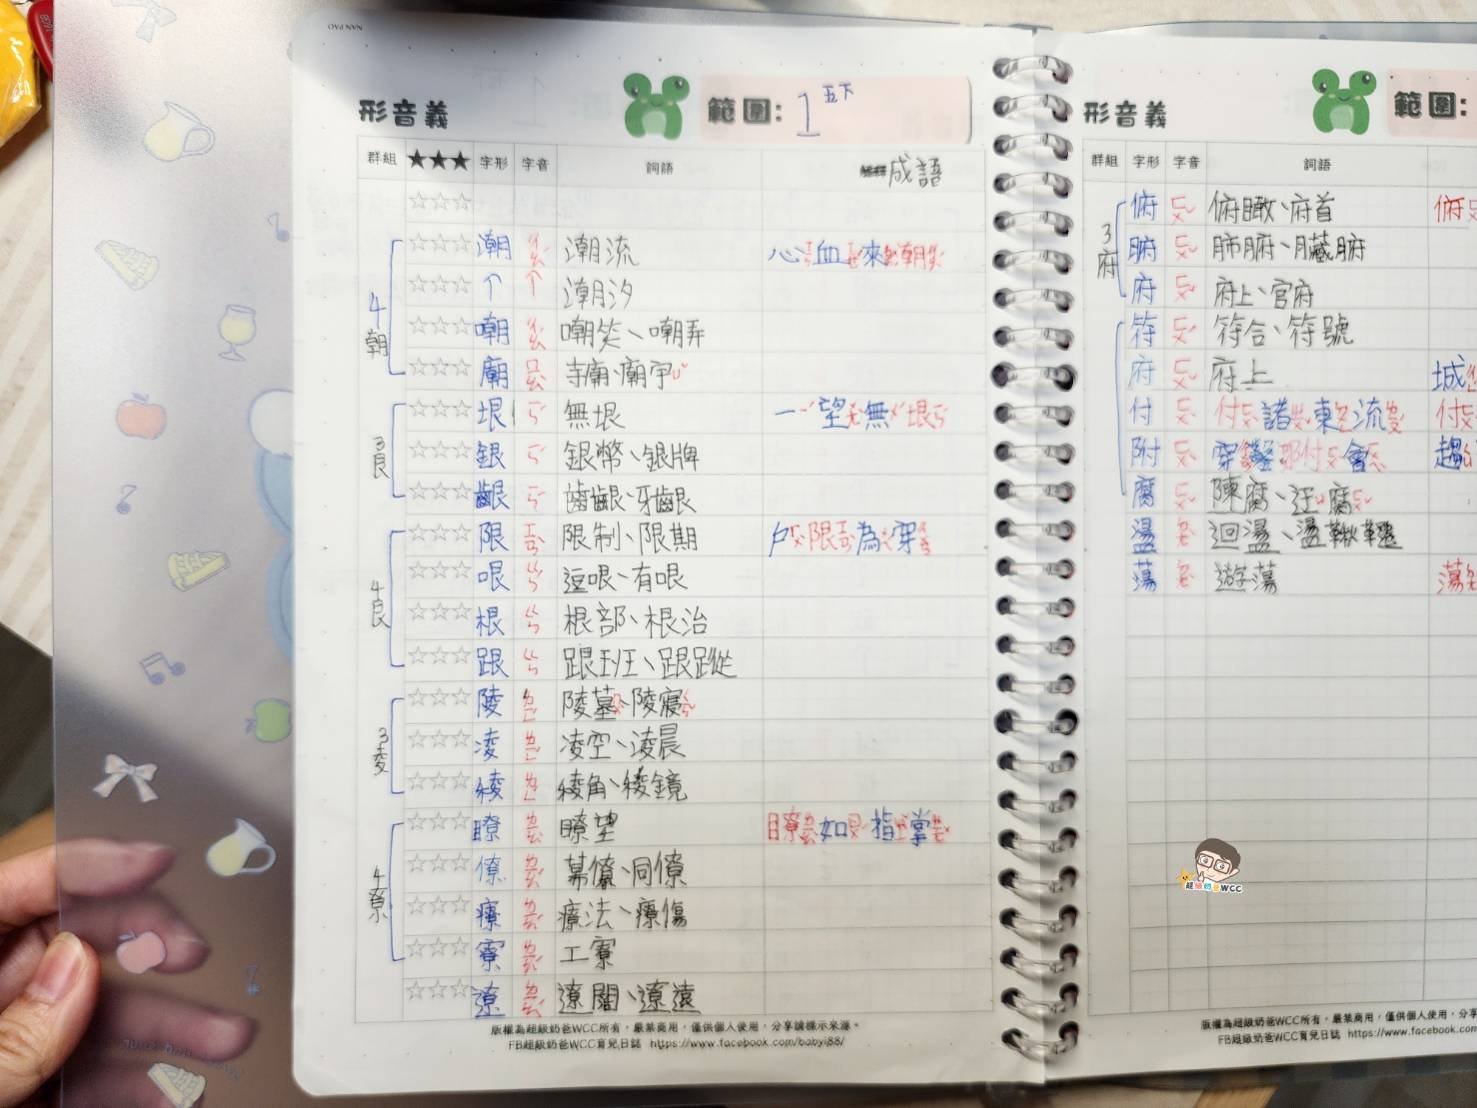 NAN PAO
形音義 範圍: 1 五下
群組 ★★★ 字形 字音 詞語 成語
4朝
☆☆☆
☆☆☆ 潮 ㄔㄠˊ 潮流 心ㄒㄧㄣ血ㄒㄧㄝˇ來ㄌㄞˊ潮ㄔㄠˊ
☆☆☆ ↑ ↑ 潮汐
☆☆☆ 嘲 ㄔㄠˊ 嘲笑、嘲弄
☆☆☆ 廟 ㄇㄧㄠˋ 寺廟、廟宇ㄩˇ
3艮
☆☆☆ 垠 ㄧㄣˊ 無垠 一ㄧˊ望ㄨㄤˋ無ㄨˊ垠ㄧㄣˊ
☆☆☆ 銀 ㄧㄣˊ 銀幣、銀牌
☆☆☆ 齦 ㄧㄣˊ 齒齦、牙齦
4艮
☆☆☆ 限 ㄒㄧㄢˋ 限制、限期 戶ㄏㄨˋ限ㄒㄧㄢˋ為ㄨㄟˊ穿ㄔㄨㄢ
☆☆☆ 哏 ㄍㄣˊ 逗哏、有哏
☆☆☆ 根 ㄍㄣ 根部、根治
☆☆☆ 跟 ㄍㄣ 跟班、跟蹤
3夌
☆☆☆ 陵 ㄌㄧㄥˊ 陵墓ㄇㄨˋ、陵寢ㄑㄧㄣˇ
☆☆☆ 凌 ㄌㄧㄥˊ 凌空、凌晨
☆☆☆ 稜 ㄌㄥˊ 稜角、稜鏡
4尞
☆☆☆ 瞭 ㄌㄧㄠˋ 瞭望 瞭ㄌㄧㄠˇ如ㄖㄨˊ指ㄓˇ掌ㄓㄤˇ
☆☆☆ 僚 ㄌㄧㄠˊ 幕僚、同僚
☆☆☆ 療 ㄌㄧㄠˊ 療法、療傷
☆☆☆ 寮 ㄌㄧㄠˊ 工寮
☆☆☆ 遼 ㄌㄧㄠˊ 遼闊、遼遠
版權為超級奶爸WCC所有，嚴禁商用，僅供個人使用，分享請標示來源。
FB超級奶爸WCC育兒日誌 https://www.facebook.com/babyi88/
形音義 範圍:
群組 字形 字音 詞語
3府
俯 ㄈㄨˇ 俯瞰、府首 俯
腑 ㄈㄨˇ 肺腑、臟腑
府 ㄈㄨˇ 府上、官府
符 ㄈㄨˊ 符合、符號
府 ㄈㄨˇ 府上 城
付 ㄈㄨˋ 付ㄈㄨˋ諸ㄓㄨ東ㄉㄨㄥ流ㄌㄧㄡˊ 付
附 ㄈㄨˋ 穿鑿附ㄈㄨˋ會ㄏㄨㄟˋ 趨
腐 ㄈㄨˇ 陳腐、迂ㄩ腐ㄈㄨˇ
盪 ㄉㄤˋ 迴盪、盪鞦韆
蕩 ㄉㄤˋ 遊蕩 蕩
超級奶爸WCC
版權為超級奶爸WCC所有，嚴禁商用，僅供個人使用，分享
FB超級奶爸WCC育兒日誌 https://www.facebook.co